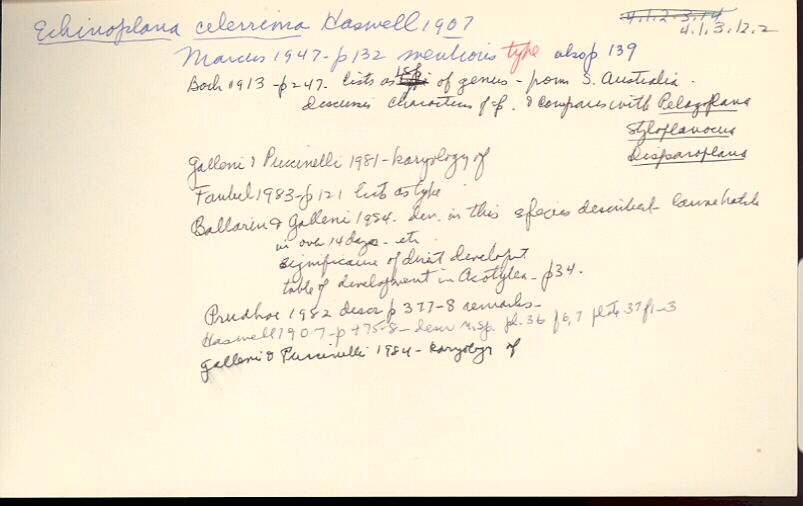 Echinoplana celerrima Haswell 1907
4.1.2.3.14
4.1.3.12.2
Marcus 1947 - p132 mentions type also p 139
Bock 1913 - p247. lists as 1 sp of genus - from S. Australia.
Discusses characters of sp. & compares with Pelagoplana
Styloplanocus
Disparoplana
Galleni & Puccinelli 1981 - karyology of
Faubel 1983 - p121 lists as type
Ballarin & Galleni 1984. dev. in this species described - larvae hatch
in over 14 days - etc.
significance of direct developt
table of development in Acotylea - p34.
Prudhoe 1982 descr p 377-8 remarks -
Haswell 1907 - p 475-8 - descr n.sp. pl. 36 f6,7 plate 37 f1-3
Galleni & Puccinelli 1984 - karyology of